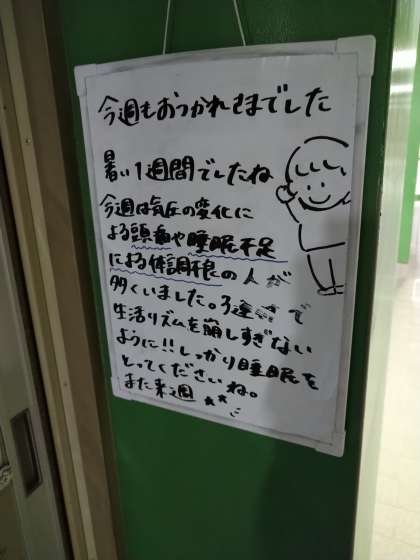 今週もおつかれさまでした
暑い1週間でしたね
今週は気圧の変化に
よる頭痛や睡眠不足
による体調不良の人が
多くいました。3連休で
生活リズムを崩しすぎない
ように!!しっかり睡眠を
とってくださいね。
また来週